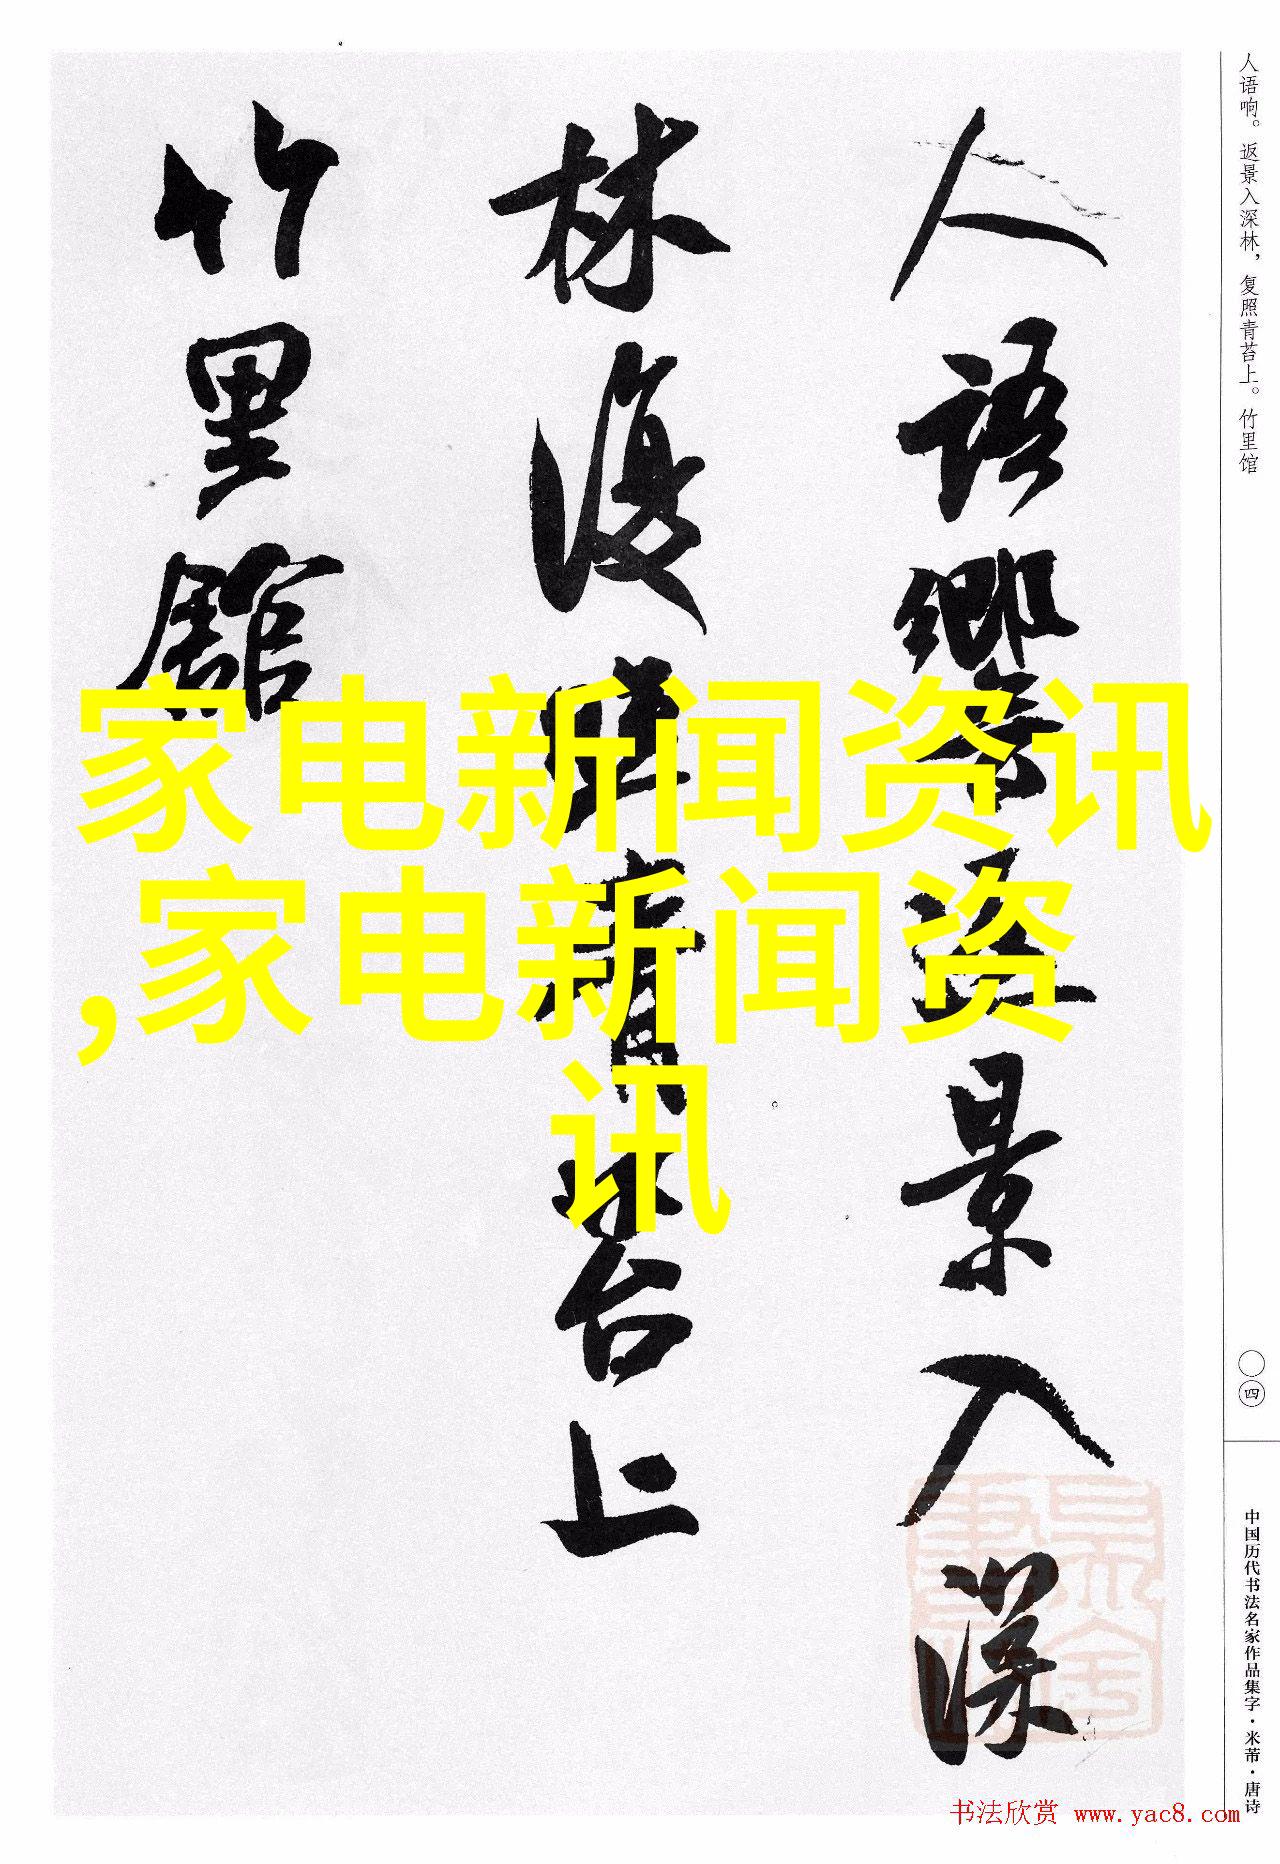 人語響返景入深
林復照青苔上
竹里館
家电新闻资讯
,家电新闻资
讯
人语响。返景入深林，复照青苔上。竹里馆
〇四
中国历代书法名家作品集字·米芾·唐诗
书法欣赏 www.yac8.com